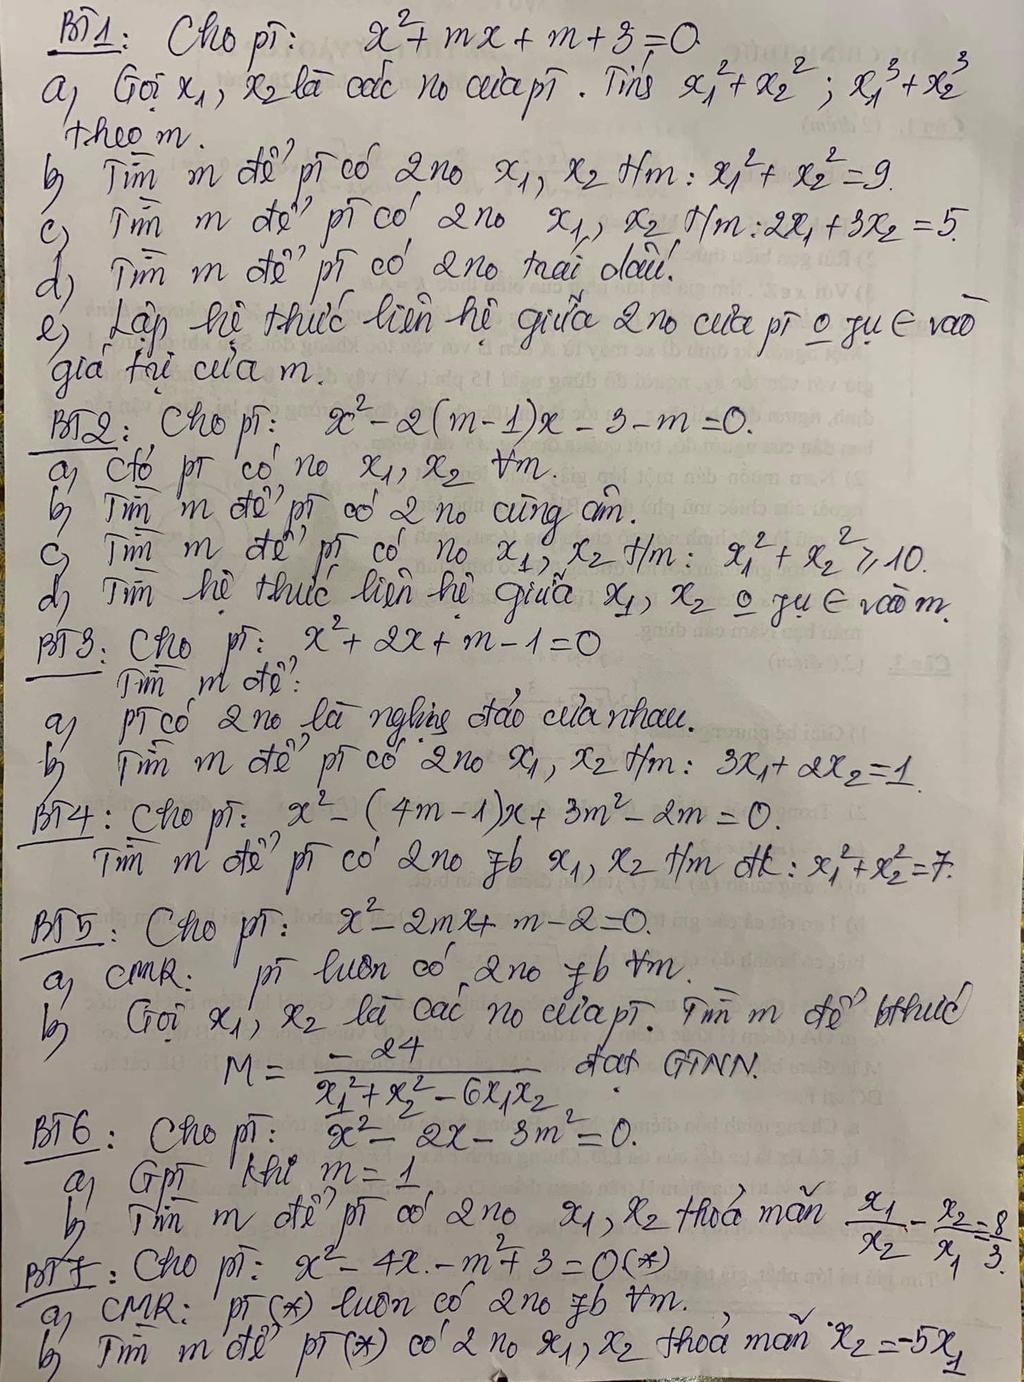 BT1: Cho pt: x² + mx + m + 3 = 0
a) Gọi x₁, x₂ là các no của pt. Tính x₁² + x₂² ; x₁³ + x₂³
theo m.
b) Tìm m để pt có 2 no x₁, x₂ t/m: x₁² + x₂² = 9.
c) Tìm m để pt có 2 no x₁, x₂ t/m: 2x₁ + 3x₂ = 5.
d) Tìm m để pt có 2 no trái dấu.
e) Lập hệ thức liên hệ giữa 2 no của pt o fụ ∈ vào
giá trị của m.
BT2: Cho pt: x² - 2(m-1)x - 3 - m = 0.
a) Ctỏ pt có no x₁, x₂ ∀m.
b) Tìm m để pt có 2 no cùng âm.
c) Tìm m để pt có no x₁, x₂ t/m: x₁² + x₂² ⩾ 10.
d) Tìm hệ thức liên hệ giữa x₁, x₂ o fụ ∈ vào m.
BT3: Cho pt: x² + 2x + m - 1 = 0
Tìm m để:
a) pt có 2 no là nghịng đảo của nhau.
b) Tìm m để pt có 2 no x₁, x₂ t/m: 3x₁ + 2x₂ = 1.
BT4: Cho pt: x² - (4m-1)x + 3m² - 2m = 0.
Tìm m để pt có 2 no fb x₁, x₂ t/m đk: x₁² + x₂² = 7.
BT5: Cho pt: x² - 2mx + m - 2 = 0.
a) CMR: pt luôn có 2 no fb ∀m.
b) Gọi x₁, x₂ là các no của pt. Tìm m để bthức
M = -24 / (x₁² + x₂² - 6x₁x₂) đạt GTNN.
BT6: Cho pt: x² - 2x - 3m² = 0.
a) Gpt khi m = 1
b) Tìm m để pt có 2 no x₁, x₂ thoả mãn x₁/x₂ - x₂/x₁ = 8/3.
BT7: Cho pt: x² - 4x - m² + 3 = 0 (*)
a) CMR: pt (*) luôn có 2 no fb ∀m.
b) Tìm m để pt (*) có 2 no x₁, x₂ thoả mãn x₂ = -5x₁